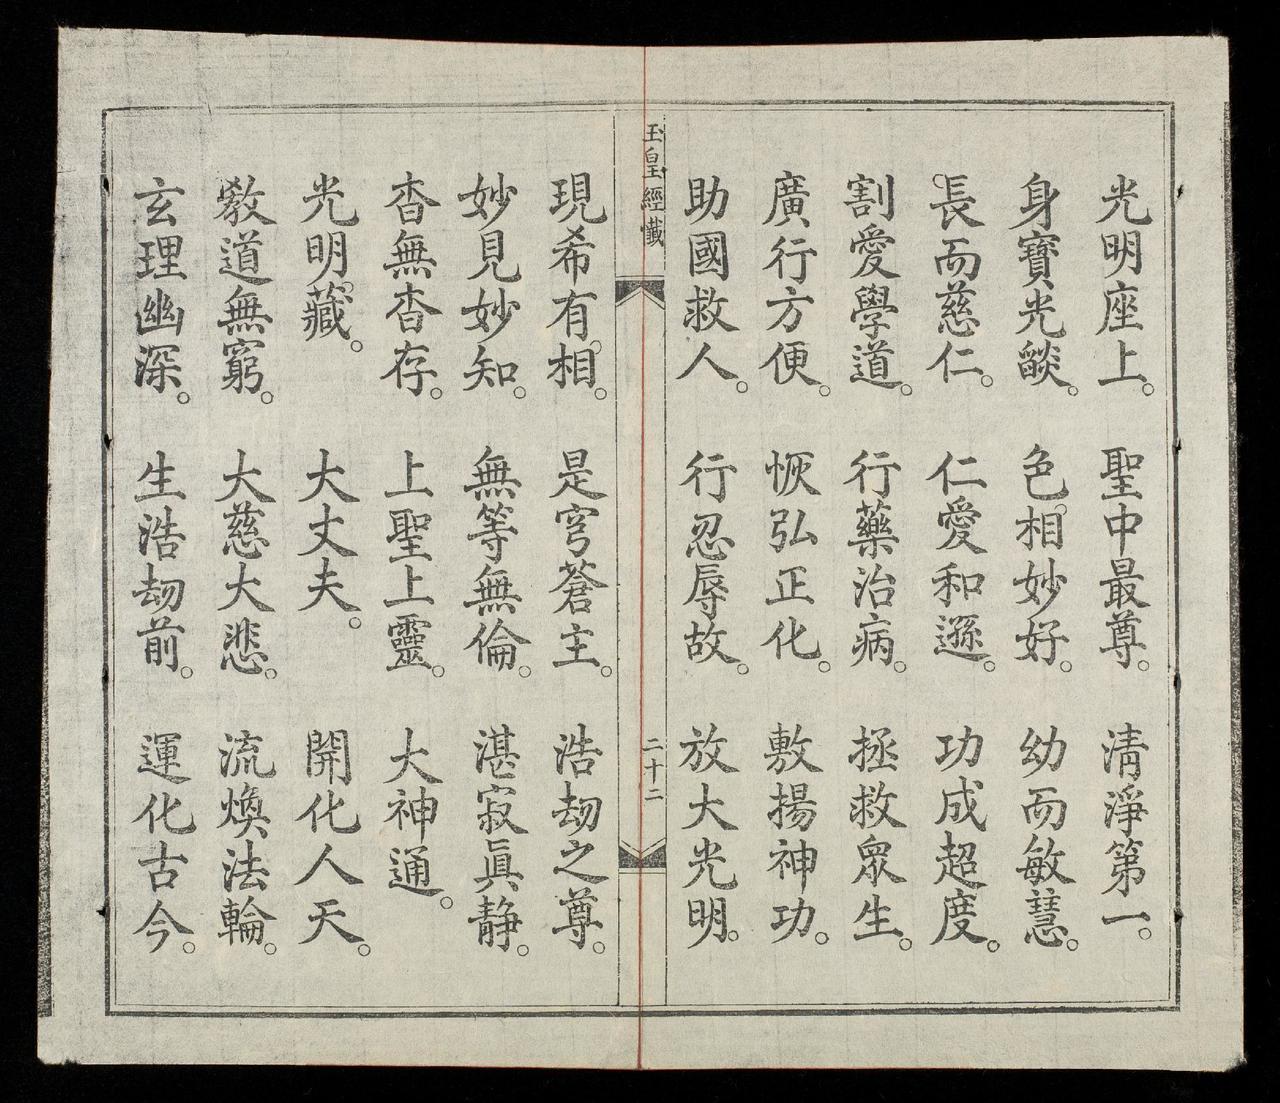 光明座上。聖中最尊。清淨第一。
身寶光燄。色相妙好。幼而敏慧。
長而慈仁。仁愛和遜。功成超度。
割愛學道。行藥治病。拯救眾生。
廣行方便。恢弘正化。敷揚神功。
助國救人。行忍辱故。放大光明。
玉皇經懺
二十二
現希有相。是穹蒼主。浩劫之尊。
妙見妙知。無等無倫。湛寂眞静。
杳無杳存。上聖上靈。大神通。
光明藏。大丈夫。開化人天。
敎道無窮。大慈大悲。流煥法輪。
玄理幽深。生浩劫前。運化古今。